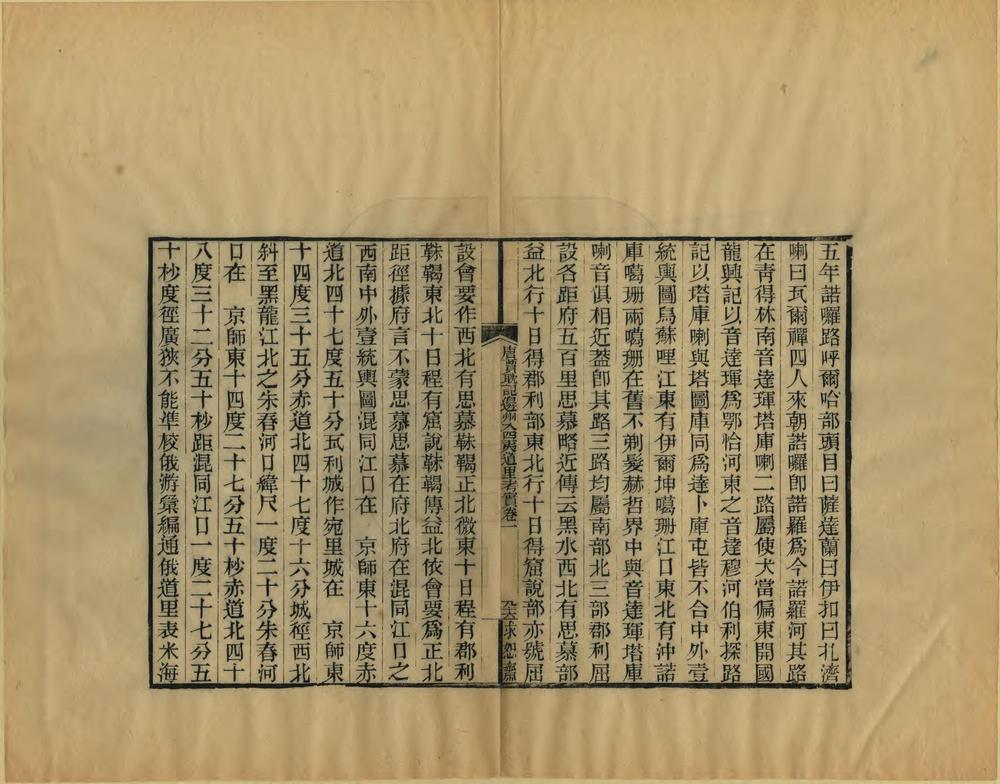 五年諾囉路呼爾哈部頭目曰薩達蘭曰伊扣曰扎濟
喇曰瓦爾禪四人來朝諾囉卽諾羅爲今諾羅河其路
在靑得林南音達琿塔庫喇二路屬使犬當偏東開國
龍興記以音達琿爲鄂怡河東之音達穆河伯利探路
記以塔庫喇與塔圖庫同爲達卜庫屯皆不合中外壹
統輿圖烏蘇哩江東有伊爾坤噶珊江口東北有沖諾
庫噶珊兩噶珊在舊不剃髮赫哲界中與音達琿塔庫
喇音俱相近蓋卽其路三路均屬南部北三部郡利屈
設各距府五百里思慕略近傳云黑水西北有思慕部
益北行十日得郡利部東北行十日得窟說部亦號屈
唐賈耽記邊州入四夷道里考實卷一
求恕齋
設會要作西北有思慕靺鞨正北微東十日程有郡利
靺鞨東北十日程有窟說靺鞨傳益北依會要爲正北
距徑據府言不蒙思慕思慕在府北府在混同江口之
西南中外壹統輿圖混同江口在　京師東十六度赤
道北四十七度五十分瓦利城作宛里城在　京師東
十四度三十五分赤道北四十七度十六分城徑西北
斜至黑龍江北之朱春河口緯尺一度二十分朱春河
口在　京師東十四度二十七分五十秒赤道北四十
八度三十二分五十秒距混同江口一度二十七分五
十秒度徑廣狹不能準校俄游彙編通俄道里表米海